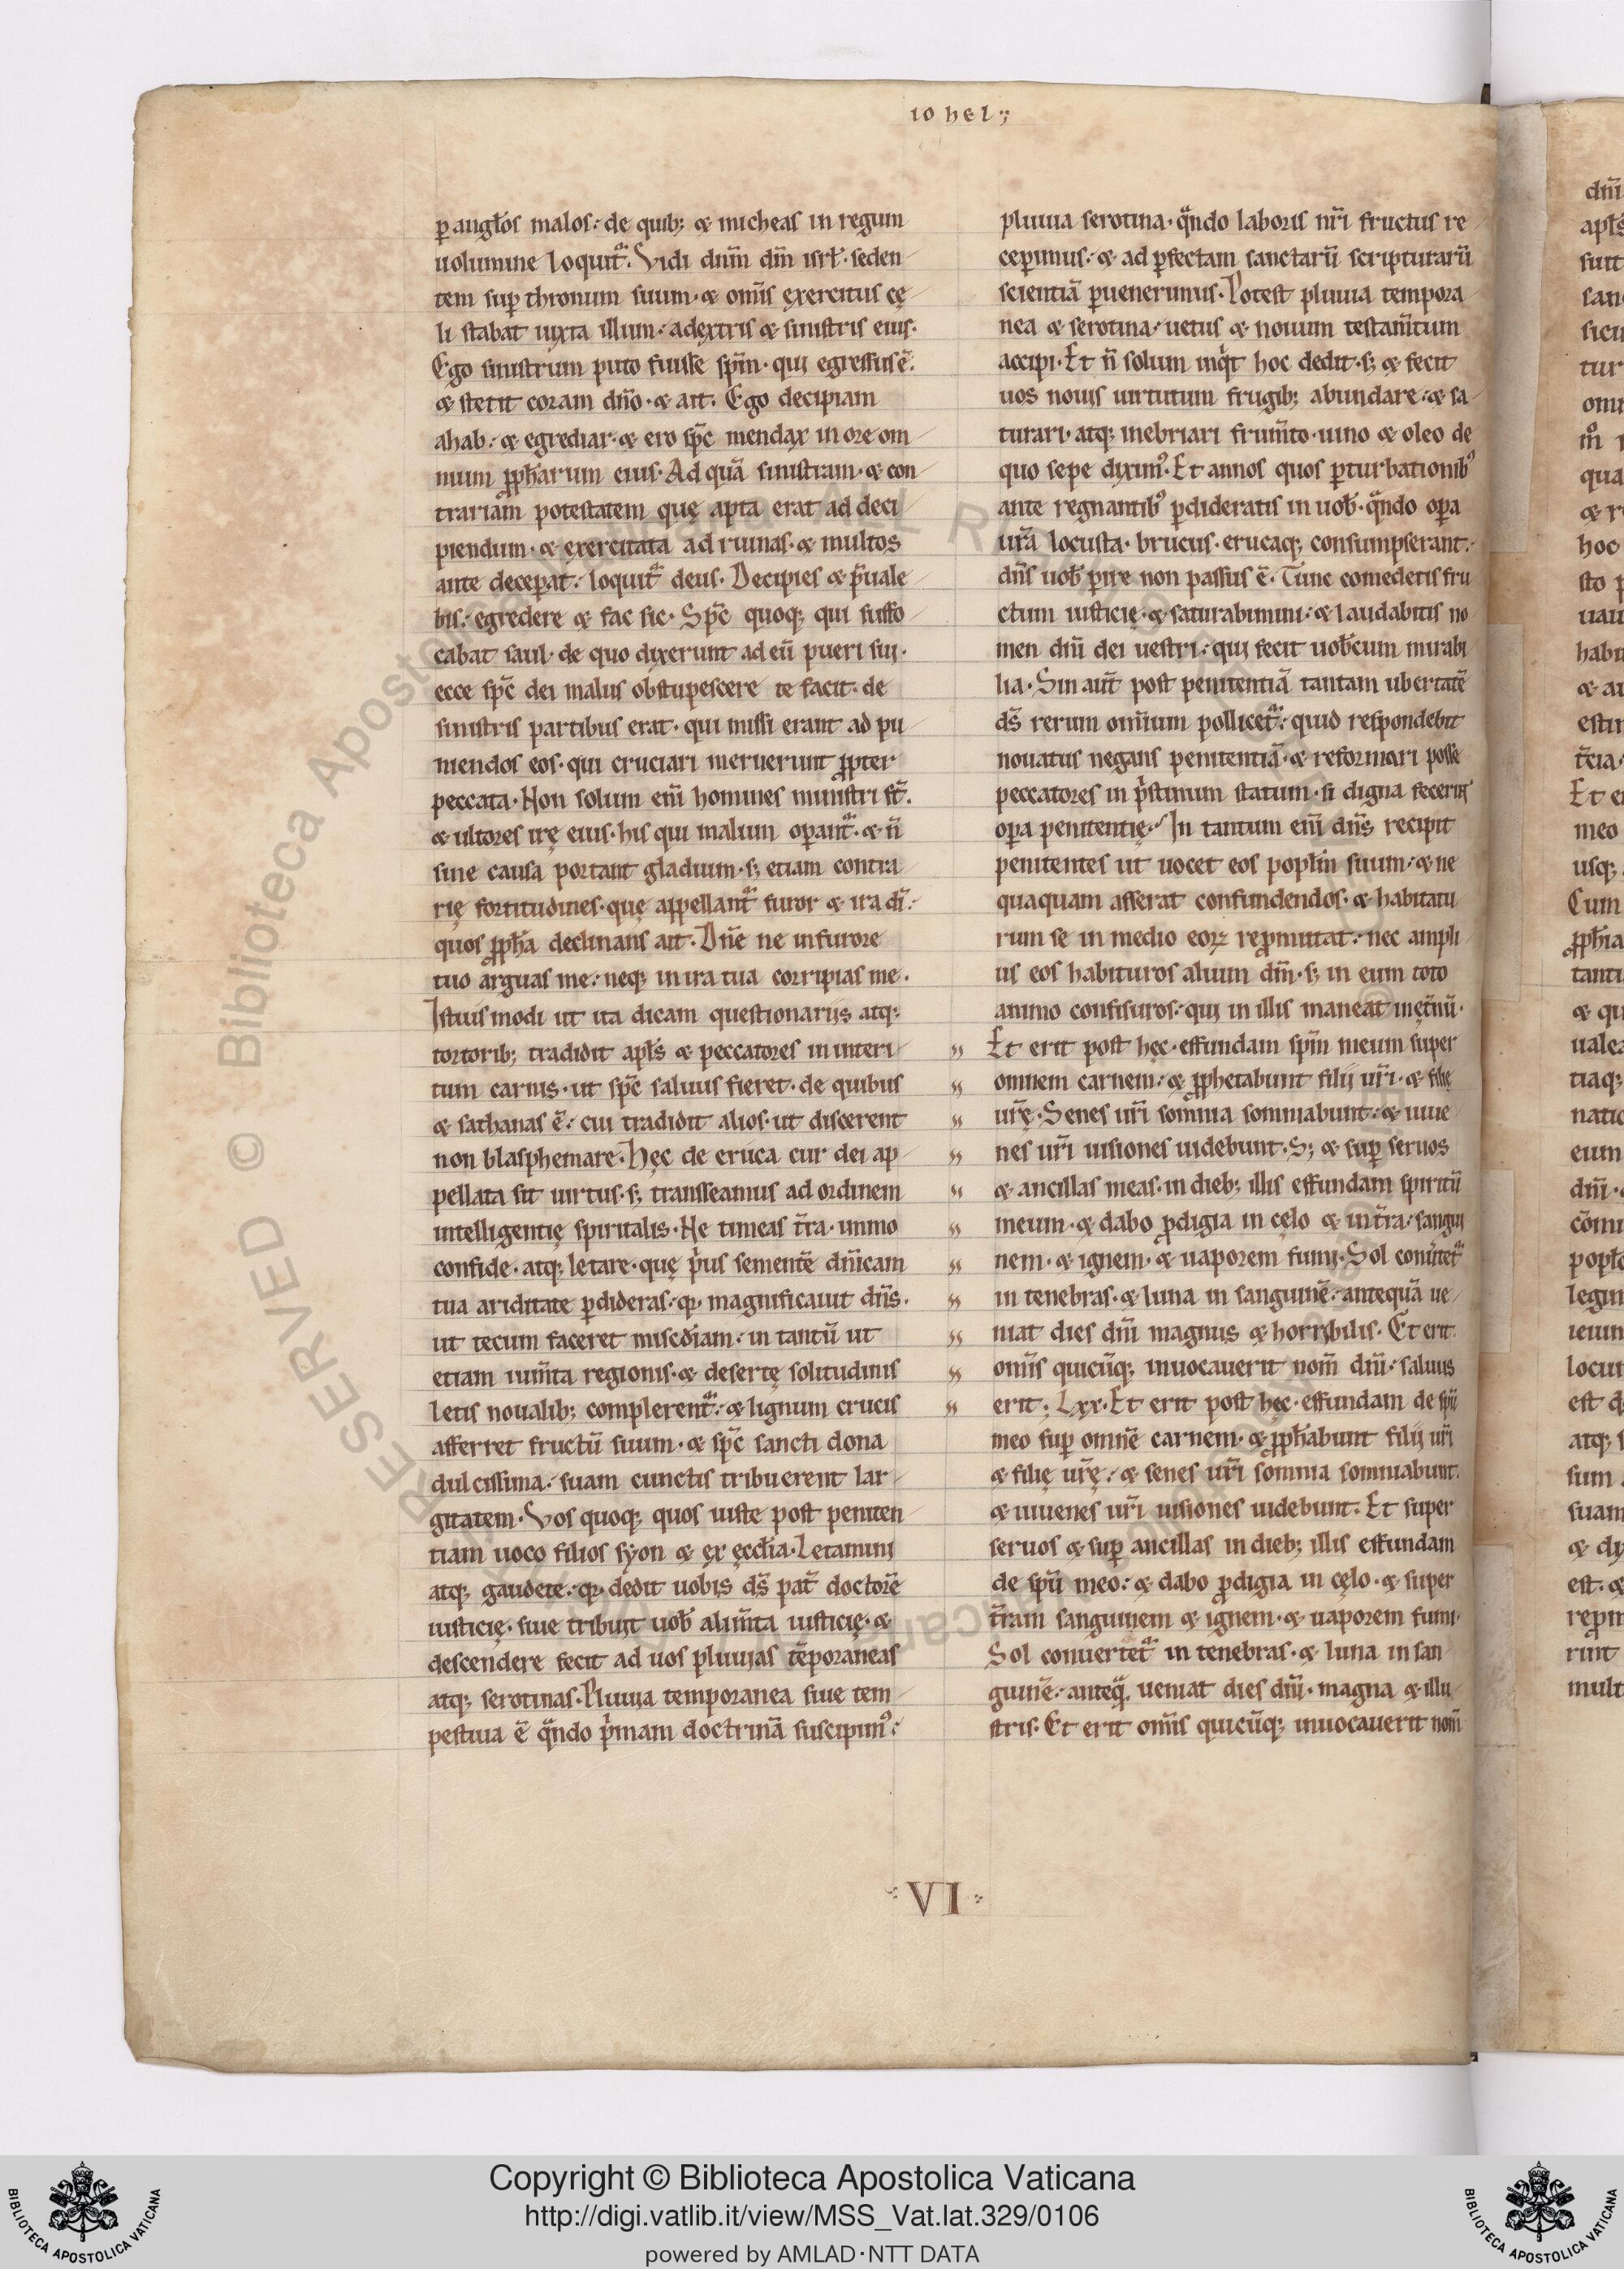 iohel;
p̱ angl̄os malos: de quib; & micheas in regum
uolumine loquit᷑. Vidi dnm̄ dm̄ isrl̄. seden
tem sup̱ thronum suum. & om̄is exercitus cę
li stabat iuxta illum: adextris & sinistris eius.
Ego sinistrum puto fuisse spm̄. qui egressus ē:
& stetit coram dn̄o. & ait. Ego decipiam
ahab: & egrediar. & ero spc̄ mendax in ore om
nium ꝓph̄arum eius. Ad quā sinistram. & con
trariam potestatem quę apta erat ad deci
piendum. & exercitata ad ruinas. & multos
ante decep̱at: loquit᷑ deus. Decipies & p̄uale
bis: egredere & fac sic. Spc̄ quoq; qui suffo
cabat saul. de quo dixerunt ad eū pueri sui.
ecce spc̄ dei malus obstupescere te facit. de
sinistris partibus erat. qui missi erant ad pu
niendos eos. qui cruciari meruerunt ꝓpter
peccata. Non solum eni᷑ homines ministri st̄.
& ultores irę eius. his qui malum op̱ant᷑. & n̄
sine causa portant gladium. s; etiam contra
rię fortitudines. quę appellant᷑ furor & ira di᷑:
quos ꝓph̄a declinans ait. Dn̄e ne in furore
tuo arguas me: neq; in ira tua corripias me.
Istiusmodi ut ita dicam questionariis atq;
tortorib; tradidit apls̄ & peccatores in interi
tum carnis. ut spc̄ saluus fieret. de quibus
& sathanas ē: cui tradidit alios. ut discerent
non blasphemare. Hęc de eruca cur dei ap
pellata sit uirtus. s; transeamus ad ordinem
intelligentię spiritalis. Ne timeas t̄ra. immo
confide. atq; letare. quę p̓us sementē dn̄icam
tua ariditate p̱dideras: q; magnificauit dn̄s.
ut tecum faceret misc̄diam: in tantū ut
etiam ium̄ta regionis. & desertę solitudinis
letis noualib; complerent᷑: & lignum crucis
afferret fructū suum. & spc̄ sancti dona
dulcissima: suam cunctis tribuerent lar
gitatem. Vos quoq; quos iuste post peniten
tiam uoco filios syon & ex eccl̄ia. Letamini
atq; gaudete: q; dedit uobis ds̄ pat̄ doctorē
iusticię. siue tribuit uob̄ alim̄ta iusticię. &
descendere fecit ad uos pluuias tēporaneas
atq; serotinas. Pluuia temporanea siue tem
pestiua ē qn̄do p̓mam doctrinā suscipim᷒:
pluuia serotina. qn̄do laboris nr̄i fructus re
cepimus: & ad p̱fectam sanctarū scripturarū
scientiā p̱uenerimus. Potest pluuia tempora
nea & serotina: uetus & nouum testam̄tum
accipi. Et n̄ solum inq̓t hoc dedit. s; & fecit
uos nouis uirtutum frugib; abundare: & sa
turari. atq; inebriari frum̄to. uino & oleo de
quo sepe dixim᷒. Et annos quos p̱turbationib᷒
ante regnantib᷒ p̱dideratis in uob̄. qn̄do op̱a
ur̄a locusta. brucus. erucaq; consumpserant:
dn̄s uob̄ p̱ire non passus ē. Tunc comedetis fru
ctum iusticię. & saturabimini: & laudabitis no
men dn̄i dei uestri: qui fecit uob̄cum mirabi
lia. Sin aut̄ post penitentiā tantam ubertatē
ds̄ rerum om̄ium pollicet᷑: quid respondebit
nouatus negans penitentiā. & reformari posse
peccatores in p̓stinum statum. si digna fecerint
op̱a penitentię. In tantum eni᷑ dn̄s recipit
penitentes ut uocet eos popl̄m suum: & ne
quaquam asserat confundendos. & habitatu
rum se in medio eoꝝ reꝓmittat: nec ampli
us eos habituros alium dm̄. s; in eum toto
animo confisuros: qui in illis maneat inęt̄nū.
„ Et erit post hęc. effundam spm̄ meum super
„ omnem carnem: & ꝓphetabunt filij ur̄i. & filię
„ ur̄ę. Senes ur̄i somnia somniabunt: & iuue
„ nes ur̄i uisiones uidebunt. S; & sup̱ seruos
„ & ancillas meas. in dieb; illis effundam spiritū
„ meum. & dabo ꝓdigia in cęlo & int̄ra: sangui
„ nem. & ignem. & uaporem fumi. Sol conu̓tet᷑
„ in tenebras. & luna in sanguinē: antequā ue
„ niat dies dn̄i magnus & horribilis. Et erit.
„ om̄is quicūq; inuocauerit nom̄ dn̄i: saluus
„ erit; Lxx. Et erit post hęc. effundam de spū
meo sup̱ omnē carnem. & ꝓph̄abunt filij ur̄i
& filię ur̄ę: & senes ur̄i somnia somniabunt.
& iuuenes ur̄i uisiones uidebunt. Et super
seruos & sup̱ ancillas in dieb; illis effundam
de spū meo: & dabo ꝓdigia in cęlo. & super
t̄ram sanguinem & ignem. & uaporem fumi.
Sol conuertet᷑ in tenebras. & luna in san
guinē: anteq̄. ueniat dies dn̄i. magna & illu
stris. Et erit om̄is quicūq; inuocauerit nom̄
VI
Copyright © Biblioteca Apostolica Vaticana
http://digi.vatlib.it/view/MSS_Vat.lat.329/0106
powered by AMLAD·NTT DATA
BIBLIOTECA APOSTOLICA VATICANA
BIBLIOTECA APOSTOLICA VATICANA